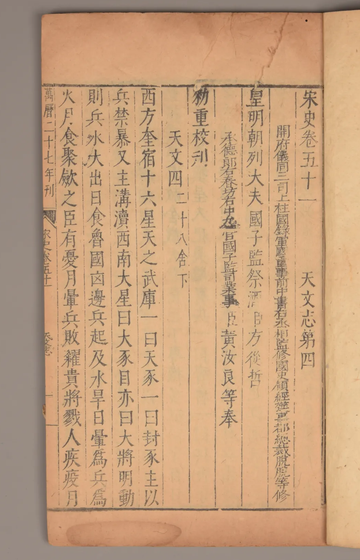 宋史卷五十一 天文志第四
開府儀同三司上柱國錄軍國重事前中書右丞相監修國史領經筵事都總裁脫脫等修
皇明朝列大夫國子監祭酒臣方從哲
承德郎右春坊右中允管國子監司業事臣黃汝良等奉
勑重校刊
天文四 二十八舍下
西方奎宿十六星天之武庫一曰天豕一曰封豕主以
兵禁暴又主溝瀆西南大星曰大豕目亦曰大將明動
則兵水大出日食魯國凶邊兵起及水旱日暈為兵為
火月食聚歛之臣有憂月暈兵敗糴貴將戮人疾疫月
萬曆二十七年刊 宋史卷五十一